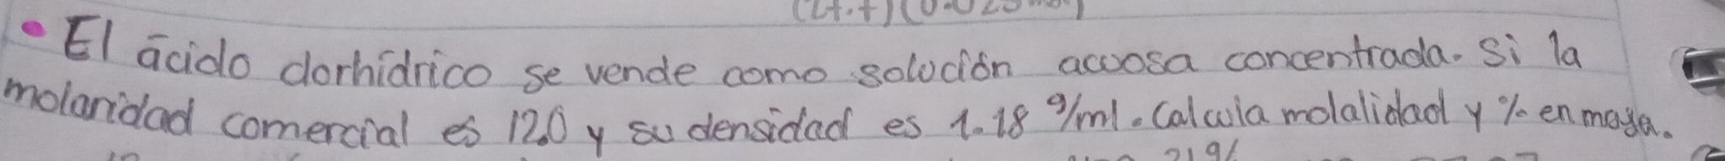 • El ácido clorhídrico se vende como solución acuosa concentrada. Si la
molaridad comercial es 12.0 y su densidad es 1.18 g/ml. Calcula molalidad y % en masa.